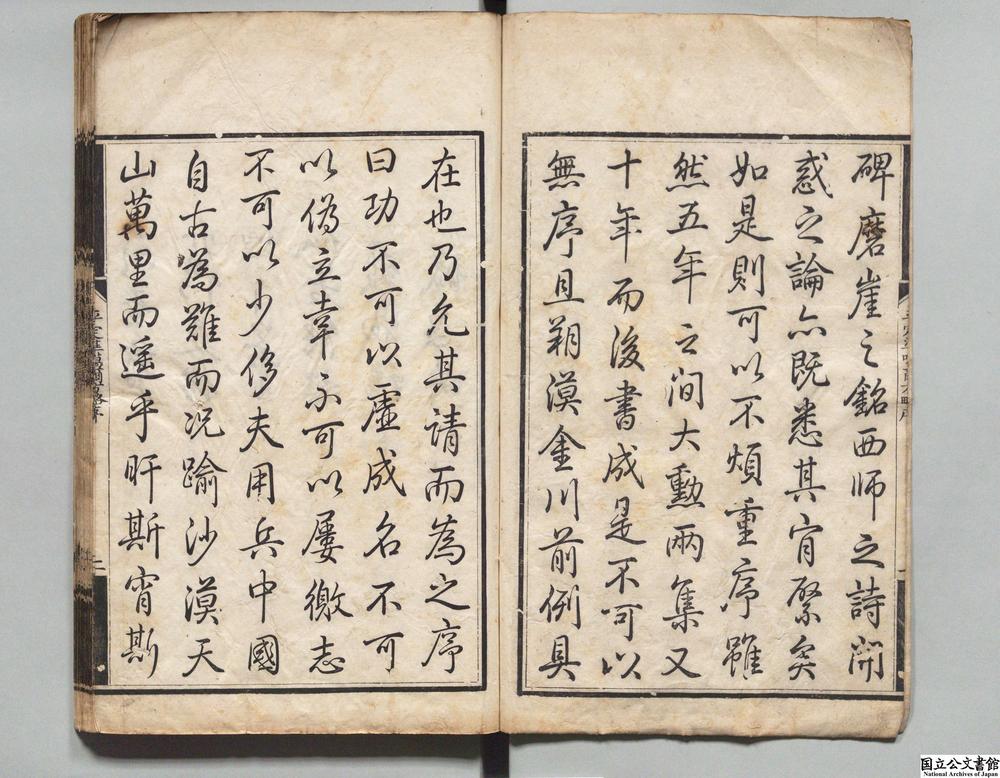 碑磨崖之銘西師之詩開
惑之論亦既悉其肯綮矣
如是則可以不煩重序雖
然五年之間大勳兩集又
十年而後書成是不可以
無序且朔漠金川前例具
在也乃允其請而為之序
曰功不可以虛成名不可
以偽立幸不可以屢徼志
不可以少侈夫用兵中國
自古為難而況踰沙漠天
山萬里而遥乎旰斯宵斯
平定準噶爾方略序
二
国立公文書館
National Archives of Japan